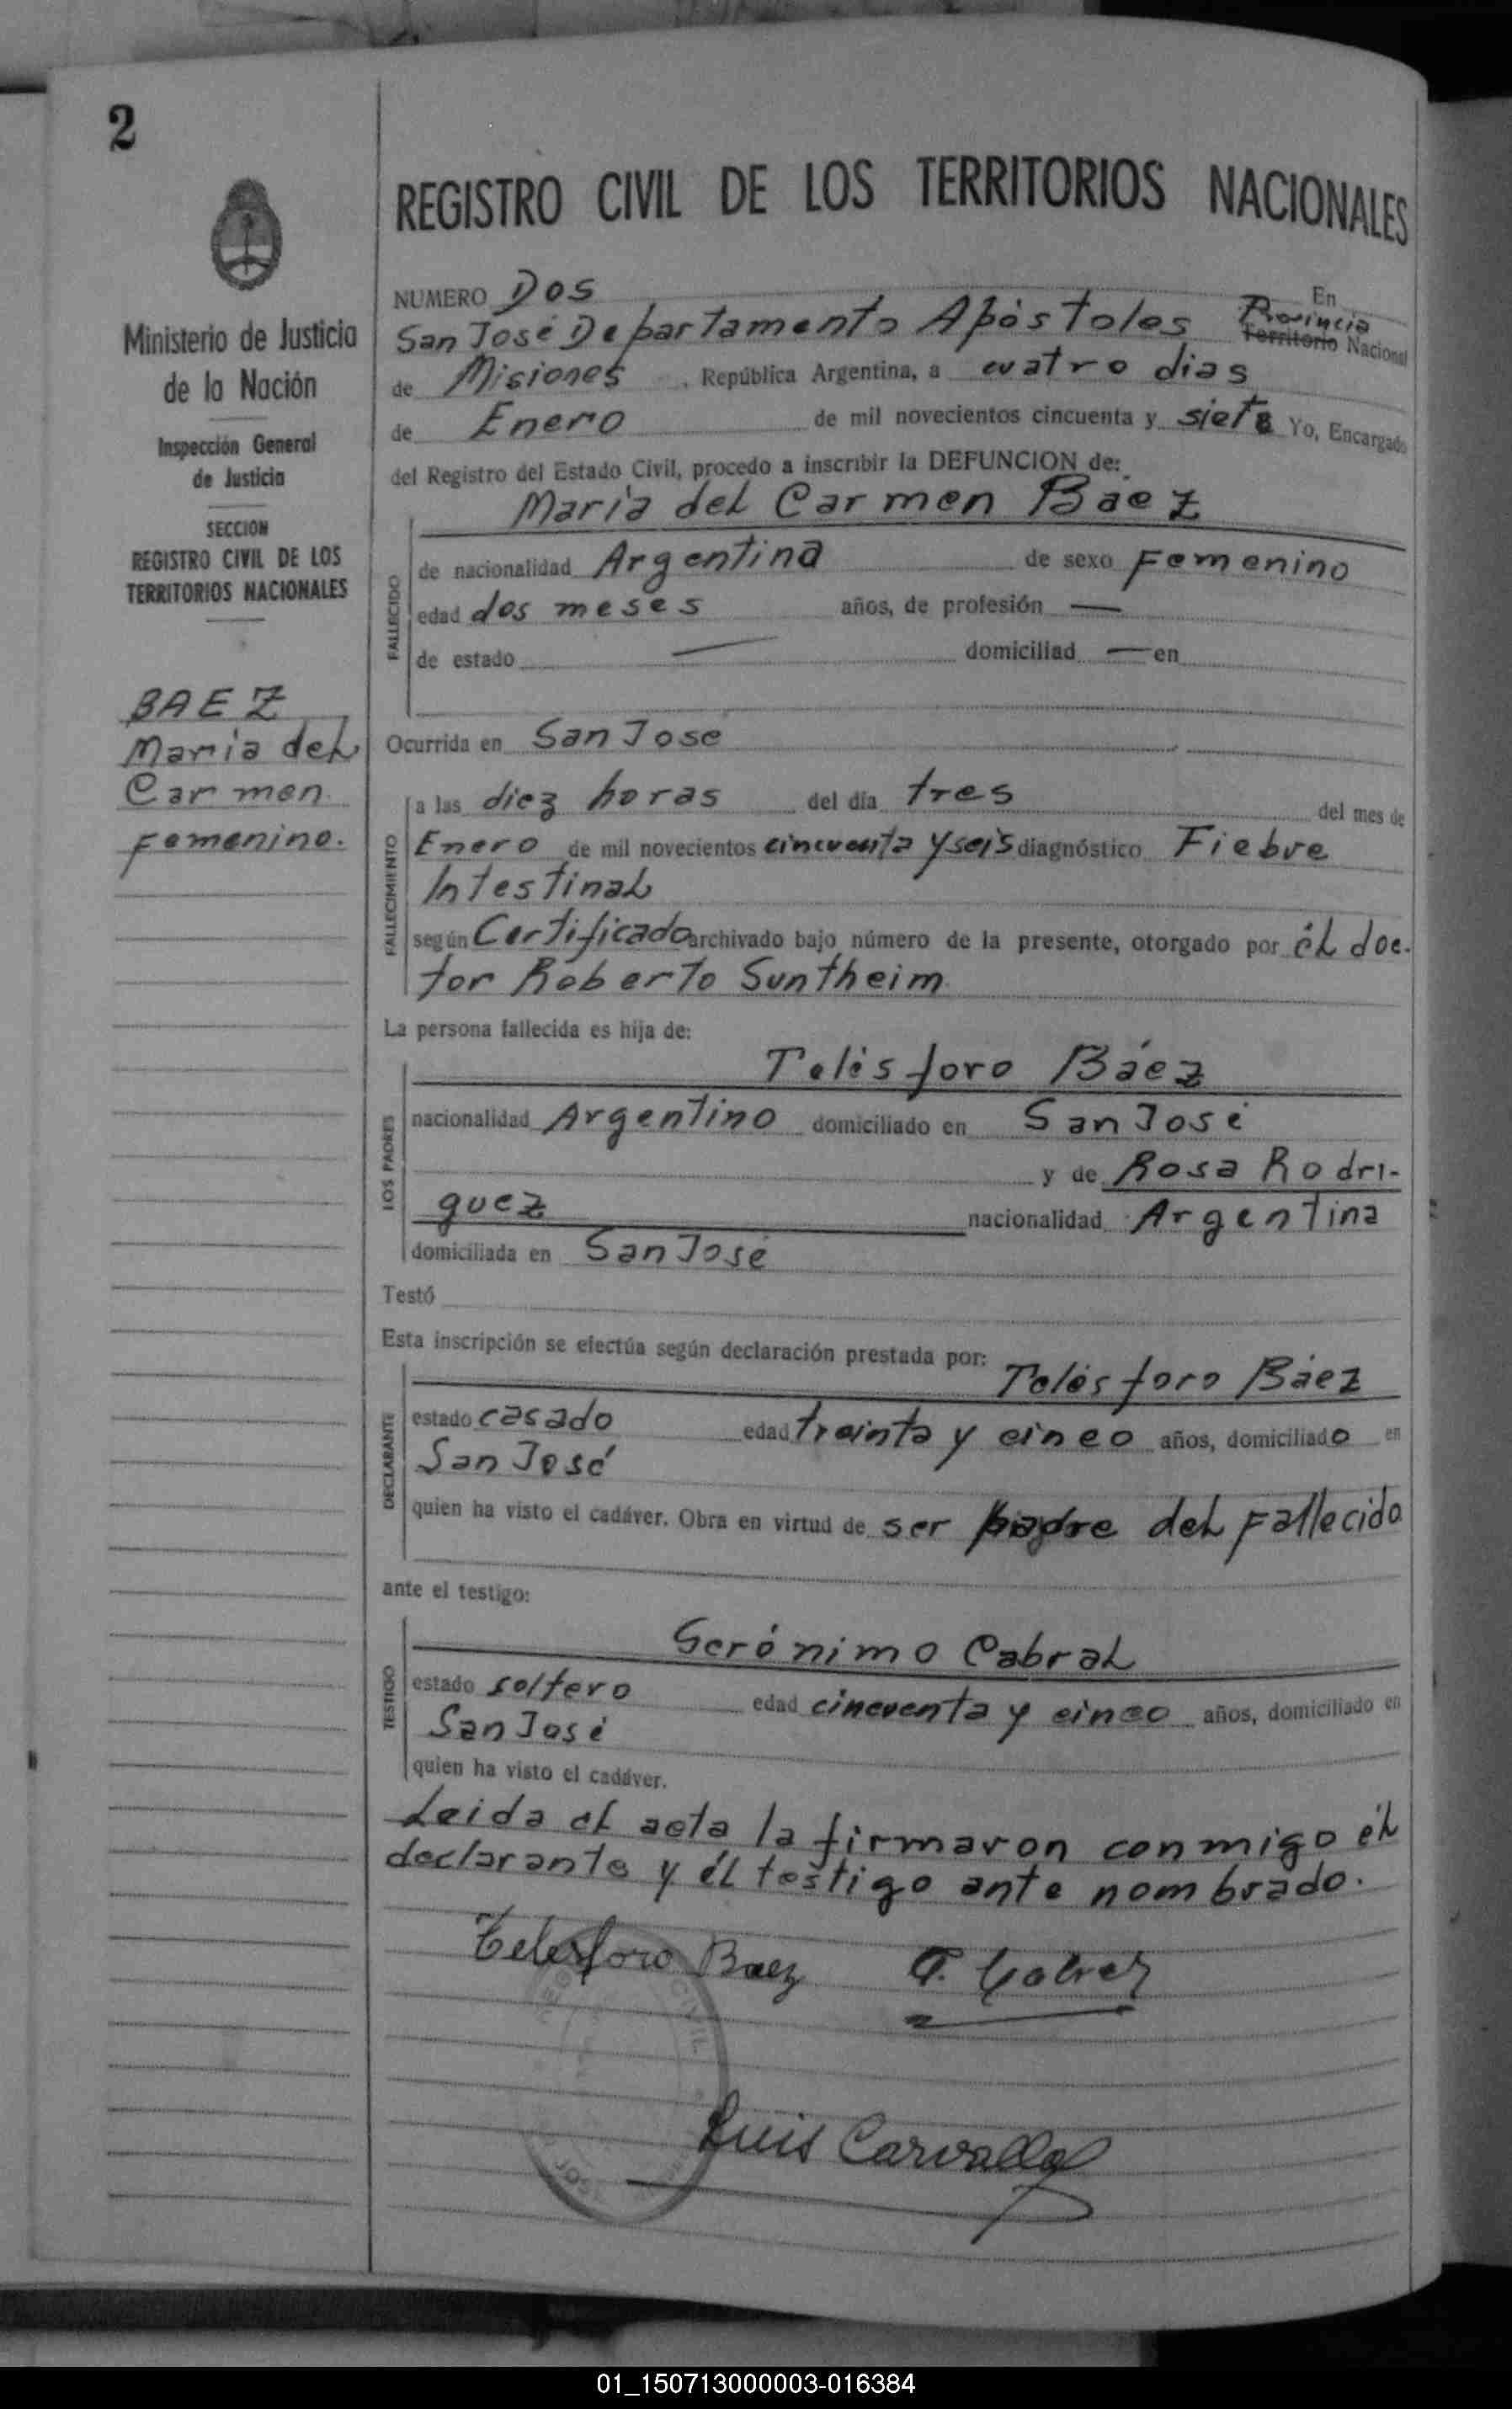 2
REGISTRO CIVIL DE LOS TERRITORIOS NACIONALES
Ministerio de Justicia
de la Nación
Inspección General
de Justicia
SECCION
REGISTRO CIVIL DE LOS
TERRITORIOS NACIONALES
BAEZ
María del
Carmen
Femenino.
NUMERO Dos En
San José Departamento Apóstoles Provincia Territorio Nacional
de Misiones, República Argentina, a cuatro dias
de Enero de mil novecientos cincuenta y siete Yo, Encargado
del Registro del Estado Civil, procedo a inscribir la DEFUNCION de:
María del Carmen Báez
FALLECIDO
de nacionalidad Argentina de sexo Femenino
edad dos meses años, de profesión —
de estado — domiciliad — en
Ocurrida en San Jose
FALLECIMIENTO
a las diez horas del día tres del mes de
Enero de mil novecientos cincuenta y seis diagnóstico Fiebre
Intestinal
según Certificado archivado bajo número de la presente, otorgado por él doc-
tor Roberto Suntheim
La persona fallecida es hija de:
LOS PADRES
Telésforo Báez
nacionalidad Argentino domiciliado en San José
y de Rosa Rodri-
guez nacionalidad Argentina
domiciliada en San José
Testó
Esta inscripción se efectúa según declaración prestada por:
DECLARANTE
Telésforo Báez
estado casado edad treinta y cinco años, domiciliado en
San José
quien ha visto el cadáver. Obra en virtud de ser padre del fallecido
ante el testigo:
TESTIGO
Gerónimo Cabral
estado soltero edad cincuenta y cinco años, domiciliado en
San José
quien ha visto el cadáver.
Leida el acta la firmaron conmigo él
declarante y él testigo ante nombrado.
Telesforo Baez
Luis Carvallo
CIVIL
01_150713000003-016384